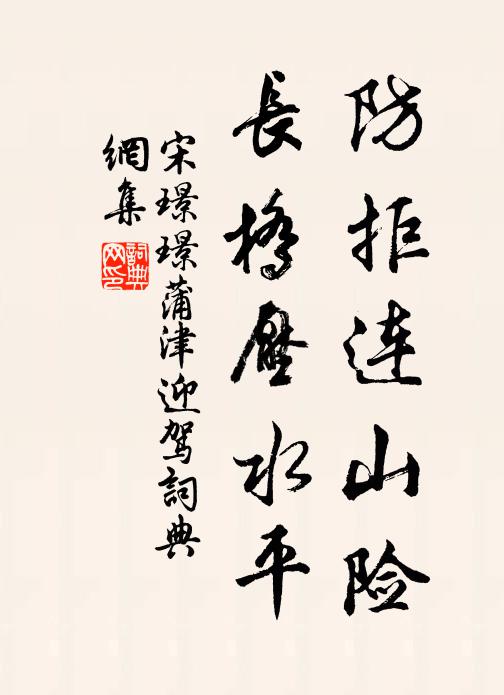 防拒连山险
長橋壓水平
宋璟璟蒲津迎駕詞典
網集
詞典
网印